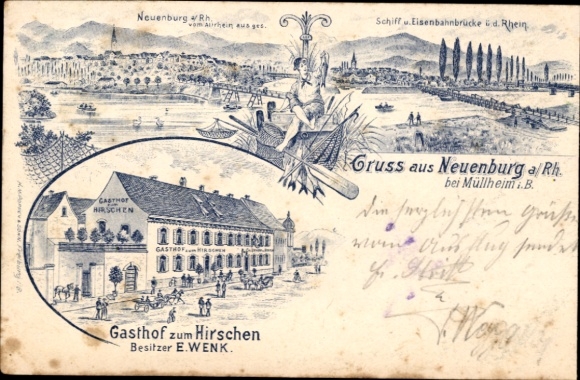 Neuenburg a/Rh.
vom Altrhein aus ges.
Schiff u. Eisenbahnbrücke ü. d. Rhein.
Gruss aus Neuenburg a/Rh.
bei Müllheim i. B.
GASTHOF
ZUM
HIRSCHEN
GASTHOF ZUM HIRSCHEN
Gasthof zum Hirschen
Besitzer E. WENK.
Die herzlichsten Grüße
vom Ausflug sendet